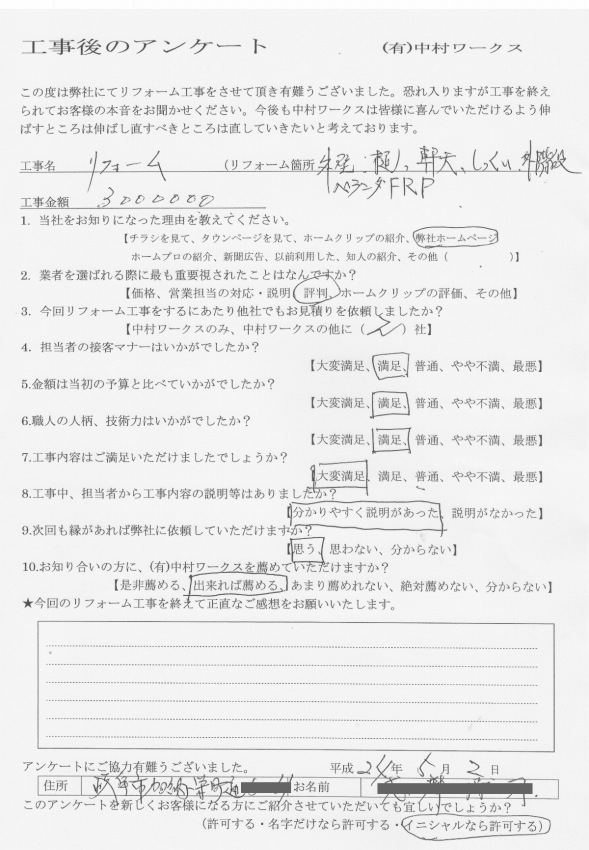 工事後のアンケート (有)中村ワークス
この度は弊社にてリフォーム工事をさせて頂き有難うございました。恐れ入りますが工事を終え
られてお客様の本音をお聞かせください。今後も中村ワークスは皆様に喜んでいただけるよう伸
ばすところは伸ばし直すべきところは直していきたいと考えております。
工事名 リフォーム (リフォーム箇所 外壁、樋、軒天、しっくい、外階段
ベランダFRP
工事金額 3000000
1. 当社をお知りになった理由を教えてください。
【チラシを見て、タウンページを見て、ホームクリップの紹介、弊社ホームページ
ホームプロの紹介、新聞広告、以前利用した、知人の紹介、その他（ ）】
2. 業者を選ばれる際に最も重要視されたことはなんですか？
【価格、営業担当の対応・説明、評判、ホームクリップの評価、その他】
3. 今回リフォーム工事をするにあたり他社でもお見積りを依頼しましたか？
【中村ワークスのみ、中村ワークスの他に（ 2 ）社】
4. 担当者の接客マナーはいかがでしたか？
【大変満足、満足、普通、やや不満、最悪】
5.金額は当初の予算と比べていかがでしたか？
【大変満足、満足、普通、やや不満、最悪】
6.職人の人柄、技術力はいかがでしたか？
【大変満足、満足、普通、やや不満、最悪】
7.工事内容はご満足いただけましたでしょうか？
【大変満足、満足、普通、やや不満、最悪】
8.工事中、担当者から工事内容の説明等はありましたか？
【分かりやすく説明があった、説明がなかった】
9.次回も縁があれば弊社に依頼していただけますか？
【思う、思わない、分からない】
10.お知り合いの方に、(有)中村ワークスを薦めていただけますか？
【是非薦める、出来れば薦める、あまり薦めれない、絶対薦めない、分からない】
★今回のリフォーム工事を終えて正直なご感想をお願いいたします。
アンケートにご協力有難うございました。 平成 24 年 5 月 2 日
住所 岐阜市加納 お名前
このアンケートを新しくお客様になる方にご紹介させていただいても宜しいでしょうか？
（許可する・名字だけなら許可する・イニシャルなら許可する）